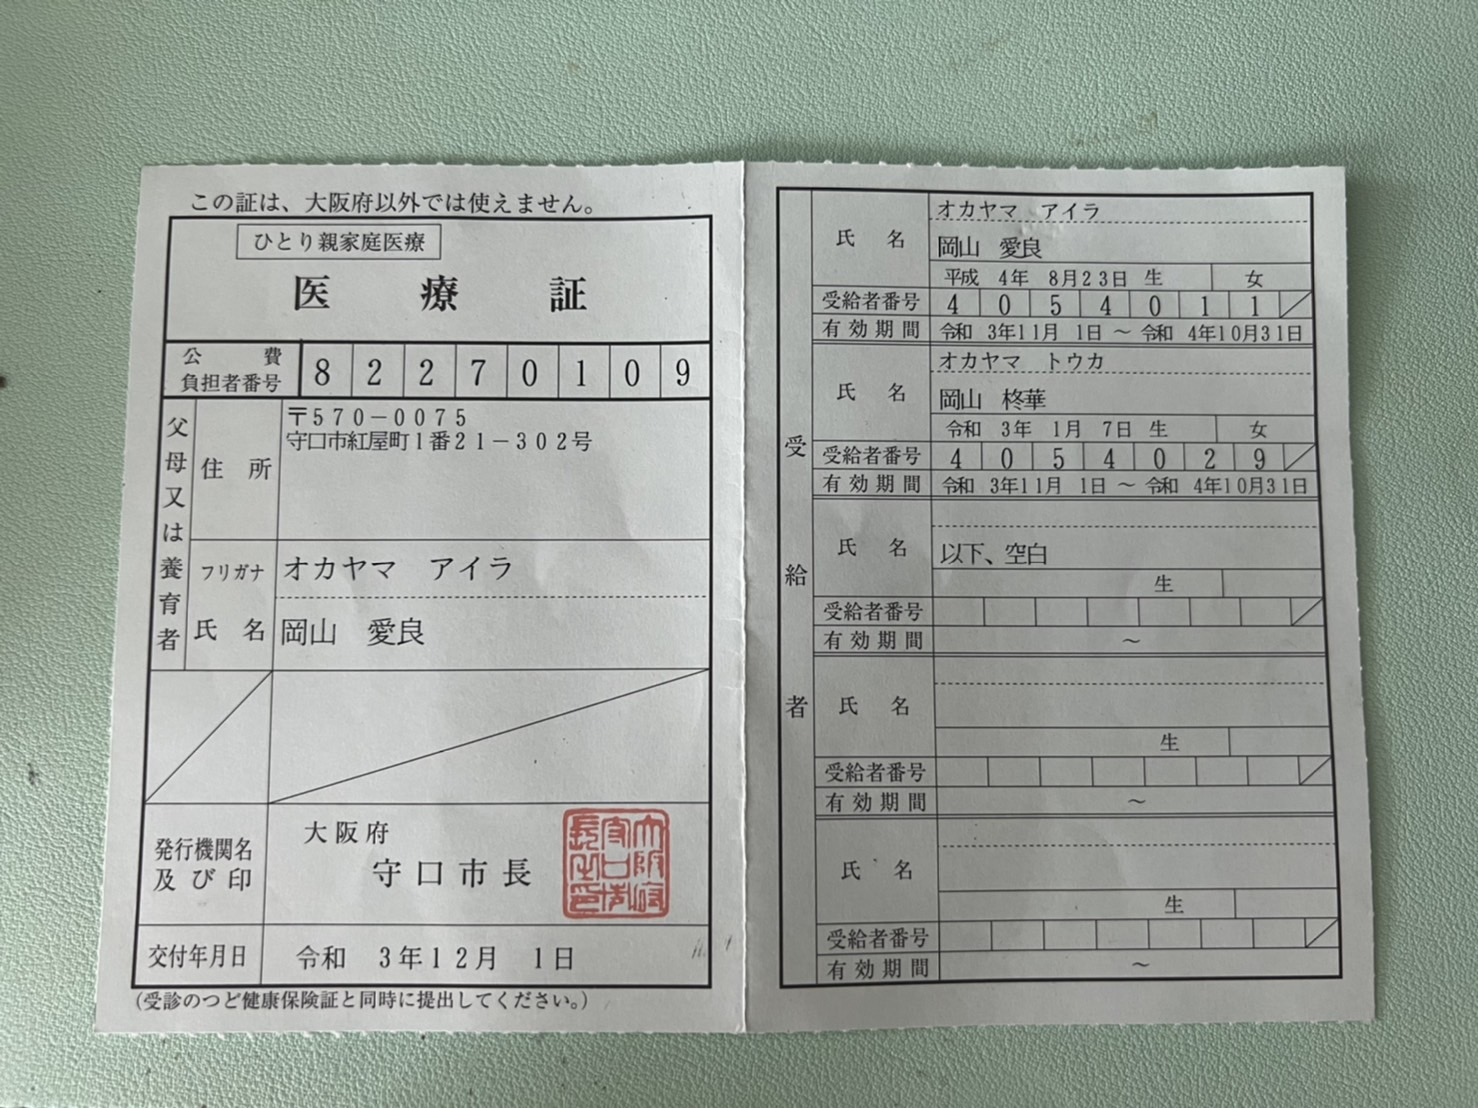 この証は、大阪府以外では使えません。
ひとり親家庭医療
医療証
公費
負担者番号 82270109
父母又は養育者
住所
〒570-0075
守口市紅屋町1番21-302号
フリガナ オカヤマ アイラ
氏名 岡山 愛良
発行機関名
及び印
大阪府
守口市長
交付年月日 令和 3年12月 1日
(受診のつど健康保険証と同時に提出してください。)
受給者
オカヤマ アイラ
氏名 岡山 愛良
平成 4年 8月23日 生 女
受給者番号 4054011
有効期間 令和 3年11月 1日 ～ 令和 4年10月31日
オカヤマ トウカ
氏名 岡山 柊華
令和 3年 1月 7日 生 女
受給者番号 4054029
有効期間 令和 3年11月 1日 ～ 令和 4年10月31日
氏名 以下、空白
生
受給者番号
有効期間 ～
氏名
生
受給者番号
有効期間 ～
氏名
生
受給者番号
有効期間 ～